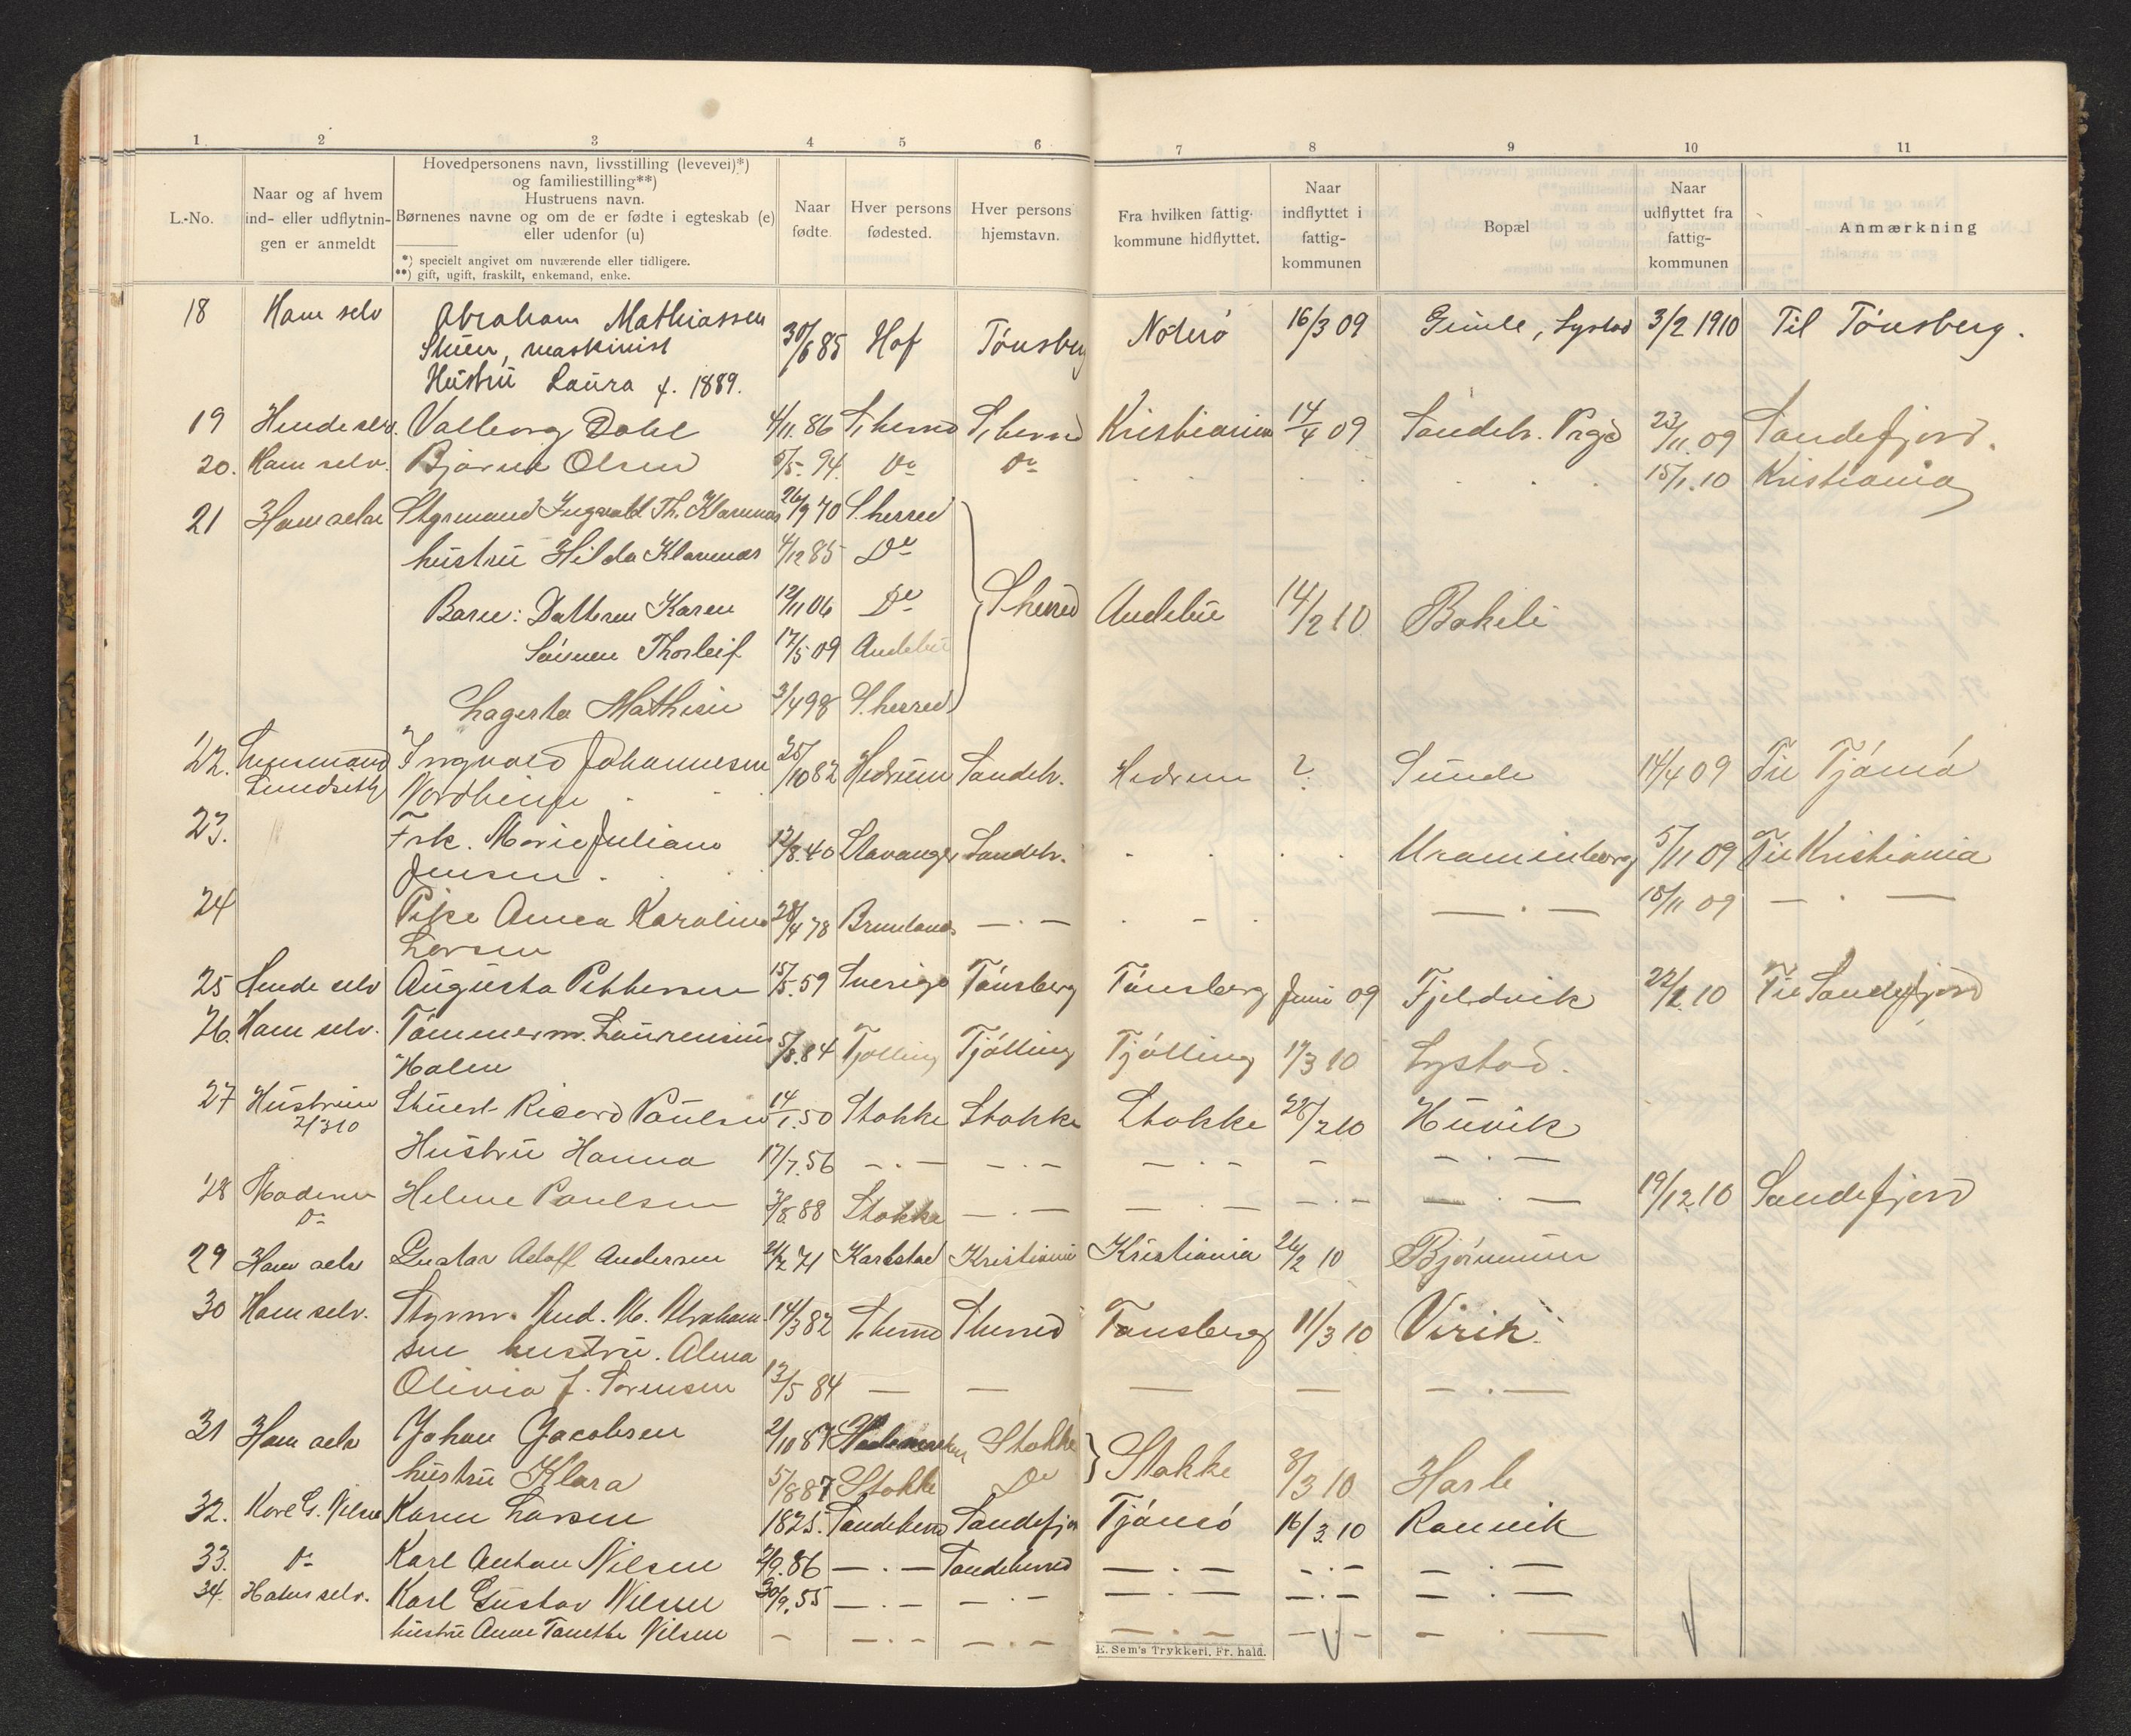 1 2 3 4 5 6 7 8 9 10 11
L.-No.
Naar og af hvem
ind- eller udflytnin-
gen er anmeldt
Hovedpersonens navn, livsstilling (levevei)*)
og familiestilling**)
Hustruens navn.
Børnenes navne og om de er fødte i egteskab (e)
eller udenfor (u)
*) specielt angivet om nuværende eller tidligere.
**) gift, ugift, fraskilt, enkemand, enke.
Naar
fødte.
Hver persons
fødested.
Hver persons
hjemstavn.
Fra hvilken fattig-
kommune hidflyttet.
Naar
indflyttet i
fattig-
kommunen
Bopæl
Naar
udflyttet fra
fattig-
kommunen
Anmærkning
18 Ham selv Abraham Mathiassen 30/6 85 Hof Tønsberg Nøterø 16/3 09 Grimle, Lystad 3/2 1910 Til Tønsberg.
maskinist
Hustru Laura f. 1889.
19 Hende selv. Valborg Dahl 4/11. 86 S. herred S. herred Kristiania 14/4 09 Sandeh. Prgd 23/11. 09 Sandefjord.
20. Ham selv. Bjarne Olsen 5/5. 94. Do Do 15/1. 10 Kristiania
21 Ham selv Styrmand Ingvald Th. Klavenæs 26/9 70 S. herred
hustru Hilda Klavenæs 4/12 85 Do
Barn: Datteren Karen 12/11 06 Do S. herred Andebu 14/2 10 Bakeli
Sønnen Thorleif 17/5 09 Andebu
Lagerta Mathisen 3/4 98 S. herred
22. Lensmand Ingvald Johannesen 25/10 82 Hedrum Sandeh. Hedrum ? Sunde 14/4 09 Til Tjømø
Lindseth
23. Frk. Marie Juliane 12/8. 40 Stavanger Sandeh. 5/11 09 Til Kristiania
Jensen
24 Pike Anna Karoline 28/4 78 Brunlanes — . — — . — 15/11 09 — . —
Larsen
25 Hende selv Augusta Pettersen 15/5. 59 Sverige Tønsberg Tønsberg Juni 09 Fjeldvik 22/2. 10 Til Sandefjord
26. Ham selv. Tømmerm. Laurensius 5/8. 84 Tjølling Tjølling Tjølling 17/3 10 Lystad.
Holm
27 Hustruen Stuert Ricard Paulsen 14/1. 50 Stokke Stokke Stokke 28/2 10 Huvik
2/3 10
Hustru Hanna 17/7. 56 — . — — . — — . — — — . —
28 Moderen Helene Paulsen 3/8. 88 Stokke — . — — . — — . — — . — 19/12. 10 Sandefjord
Do
29 Ham selv Gustav Adolf Andersen 21/2 71 Karlstad Kristiania Kristiania 26/2 10 Bjørnumm
30 Ham selv. Styrm. And. M. Abraham- 14/3 82 S. herred S. herred Tønsberg 11/3 10 Virik.
sen hustru. Alma
Olivia f. Sørensen 13/5 84 — — — — — . —
31 Ham selv Johan Jacobsen 2/10 87 Stokke Stokke 8/3 10 Hasle
hustru Klara 5/8 87 Stokke Do
32. Karl G. Nilsen Karen Larsen 1825. Sandeherred Sandefjord Tjømø 16/3. 10 Ranvik
33. Do Karl Anton Nilsen 2/9. 86 — . — Sandeherred — . — — . — — . —
34. Ham selv. Karl Gustav Nilsen 30/9. 55 — . — — . — — . — — . — — . —
hustru Anne Tanette Nilsen — — . — — . — — . — — . — — . —
E. Sem's Trykkeri, Fr. hald.